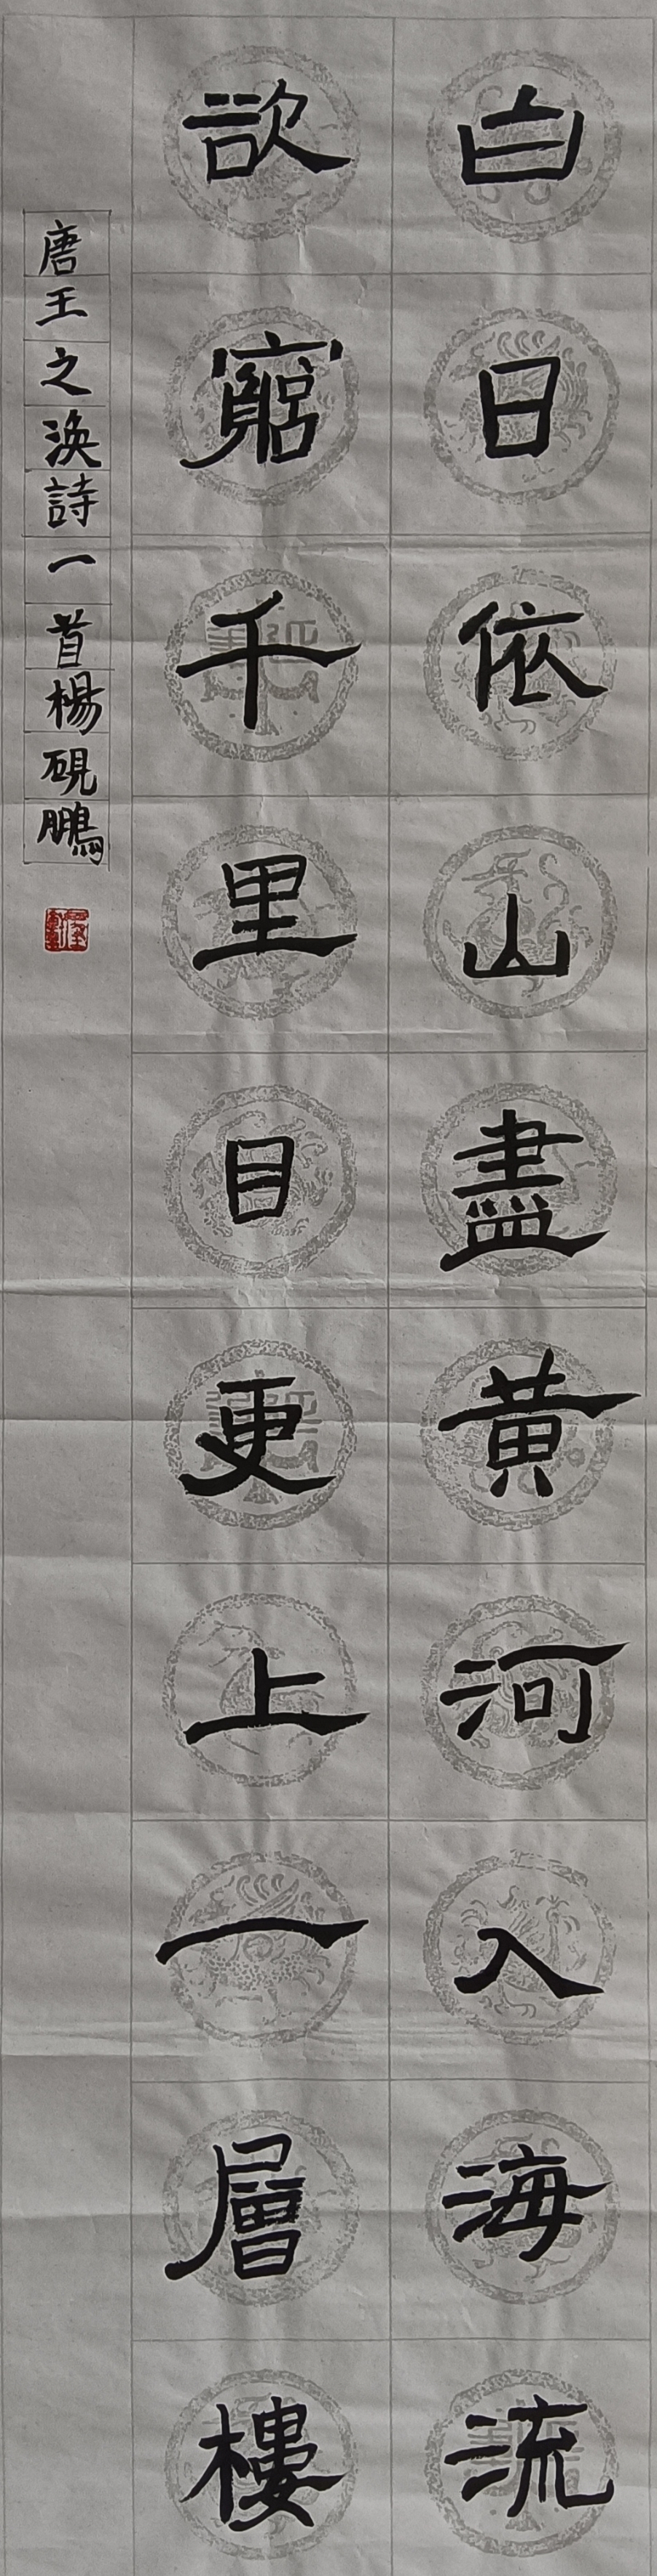 白日依山盡黃河入海流
欲窮千里目更上一層樓
唐王之渙詩一首楊硯鵬